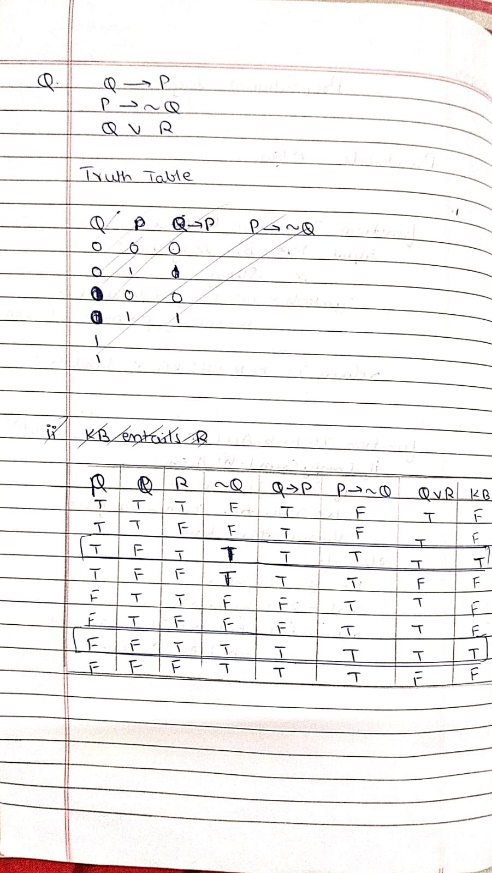 Q. Q → P
P → ~Q
Q ∨ R
Truth Table
Q P Q→P P→~Q
0 0 0
0 1
0 0
1 1
1
1
ii KB entails R
P Q R ~Q Q→P P→~Q Q∨R KB
T T T F T F T F
T T F F T F T F
T F T T T T T T
T F F T T T F F
F T T F F T T F
F T F F F T T F
F F T T T T T T
F F F T T T F F